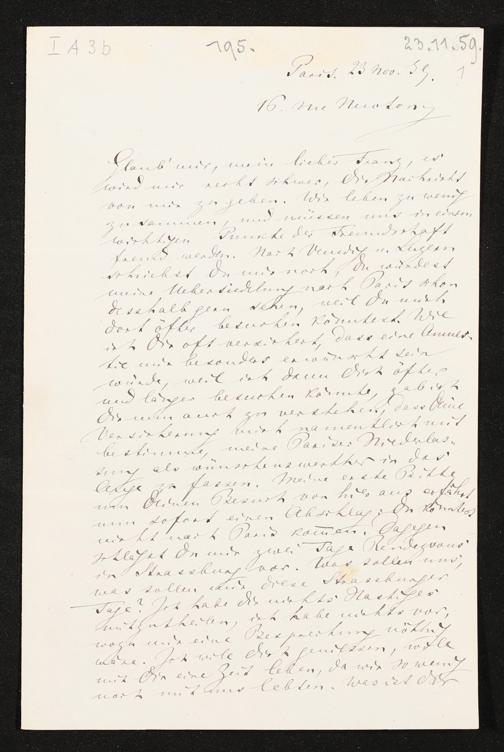 I A 3b 195. 23.11.59.
Paris. 23 Nov. 59. 1
16. rue Newton
Glaub' mir, mein lieber Franz, es
wird mir recht schwer, Dir Nachricht
von mir zu geben. Wir leben zu wenig
zusammen, und müssen uns in einem
wichtigen Punkte der Freundschaft
fremd werden. Nach Venedig u. Luzern
schriebst Du mir noch, Du würdest
meine Uebersiedelung nach Paris schon
desshalb gern sehen, weil Du mich
dort öfter besuchen könntest. Wie
ich Dir oft versichert, dass eine Amnes-
tie mir besonders erwünscht sein
würde, weil ich dann Dich öfter
und länger besuchen könnte, gabst
Du nun auch zu verstehen, dass Deine
Versicherung mich namentlich mit
bestimme, meine Pariser Niederlas-
sung als wünschenswerther in das
Auge zu fassen. Meine erste Bitte
um Deinen Besuch von hier aus erfährt
nun sofort einen Abschlag: Du könntest
nicht nach Paris kommen. Dagegen
schlägst Du mir zwei Tage Rendezvous
in Strassburg vor. Was sollen uns,
was sollen mir diese Strassburger
Tage? Ich habe Dir nichts Hastiges
mitzutheilen, ich habe nichts vor,
wozu mir eine Besprechung nöthig
wäre. Ich will Dich geniessen, wollte
mit Dir eine Zeit leben, da wir so wenig
noch mit uns lebten. Was ist Dir